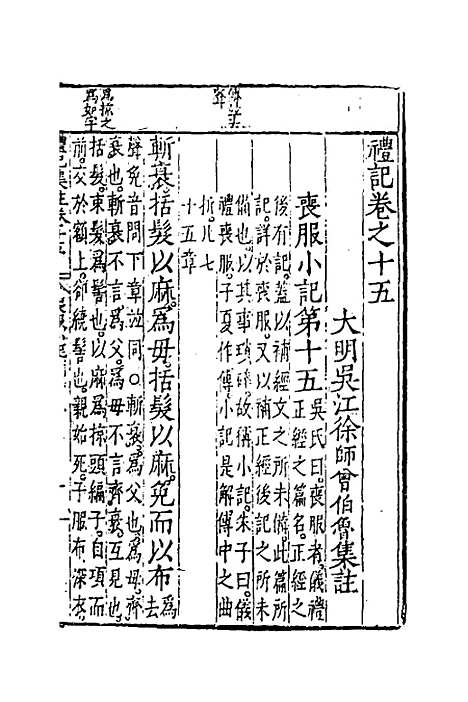 禮記卷之十五
大明吳江徐師曾伯魯集註
喪服小記第十五
吳氏曰喪服者儀禮
正經之篇名正經之
後有記蓋以補經文之所未備此篇所
記詳於喪服又以補正經後記之所未
備也以其事瑣碎故稱小記朱子曰儀
禮喪服子夏作傳小記是解傳中之曲
折凡七
十五章
斬衰括髮以麻為母括髮以麻免而以布
為
去
聲免音問下章並同○斬衰為父也為母齊
衰也斬衰不言為父為母不言齊衰互見也
括髮束髮為髻也以麻為掠頭編子自項而
前交於額上卻繞髻也親始死子服布深衣